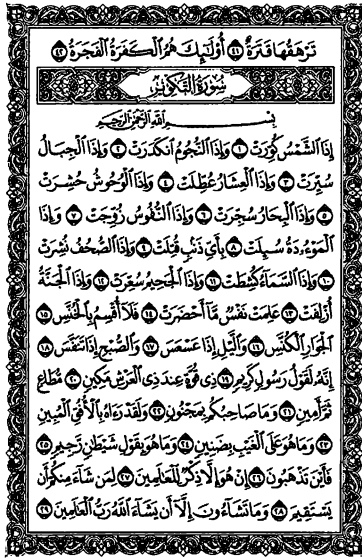 تَرْهَقُهَا قَتَرَةٌ ٤١ أُولَٰئِكَ هُمُ الْكَفَرَةُ الْفَجَرَةُ ٤٢
سُورَةُ التَّكْوِيرِ
بِسْمِ اللَّهِ الرَّحْمَٰنِ الرَّحِيمِ
إِذَا الشَّمْسُ كُوِّرَتْ ١ وَإِذَا النُّجُومُ انكَدَرَتْ ٢ وَإِذَا الْجِبَالُ
سُيِّرَتْ ٣ وَإِذَا الْعِشَارُ عُطِّلَتْ ٤ وَإِذَا الْوُحُوشُ حُشِرَتْ
٥ وَإِذَا الْبِحَارُ سُجِّرَتْ ٦ وَإِذَا النُّفُوسُ زُوِّجَتْ ٧ وَإِذَا
الْمَوْءُودَةُ سُئِلَتْ ٨ بِأَيِّ ذَنبٍ قُتِلَتْ ٩ وَإِذَا الصُّحُفُ نُشِرَتْ
١٠ وَإِذَا السَّمَاءُ كُشِطَتْ ١١ وَإِذَا الْجَحِيمُ سُعِّرَتْ ١٢ وَإِذَا الْجَنَّةُ
أُزْلِفَتْ ١٣ عَلِمَتْ نَفْسٌ مَّا أَحْضَرَتْ ١٤ فَلَا أُقْسِمُ بِالْخُنَّسِ ١٥
الْجَوَارِ الْكُنَّسِ ١٦ وَاللَّيْلِ إِذَا عَسْعَسَ ١٧ وَالصُّبْحِ إِذَا تَنَفَّسَ ١٨
إِنَّهُ لَقَوْلُ رَسُولٍ كَرِيمٍ ١٩ ذِي قُوَّةٍ عِندَ ذِي الْعَرْشِ مَكِينٍ ٢٠ مُّطَاعٍ
ثَمَّ أَمِينٍ ٢١ وَمَا صَاحِبُكُم بِمَجْنُونٍ ٢٢ وَلَقَدْ رَآهُ بِالْأُفُقِ الْمُبِينِ
٢٣ وَمَا هُوَ عَلَى الْغَيْبِ بِضَنِينٍ ٢٤ وَمَا هُوَ بِقَوْلِ شَيْطَانٍ رَّجِيمٍ ٢٥
فَأَيْنَ تَذْهَبُونَ ٢٦ إِنْ هُوَ إِلَّا ذِكْرٌ لِّلْعَالَمِينَ ٢٧ لِمَن شَاءَ مِنكُمْ أَن
يَسْتَقِيمَ ٢٨ وَمَا تَشَاءُونَ إِلَّا أَن يَشَاءَ اللَّهُ رَبُّ الْعَالَمِينَ ٢٩